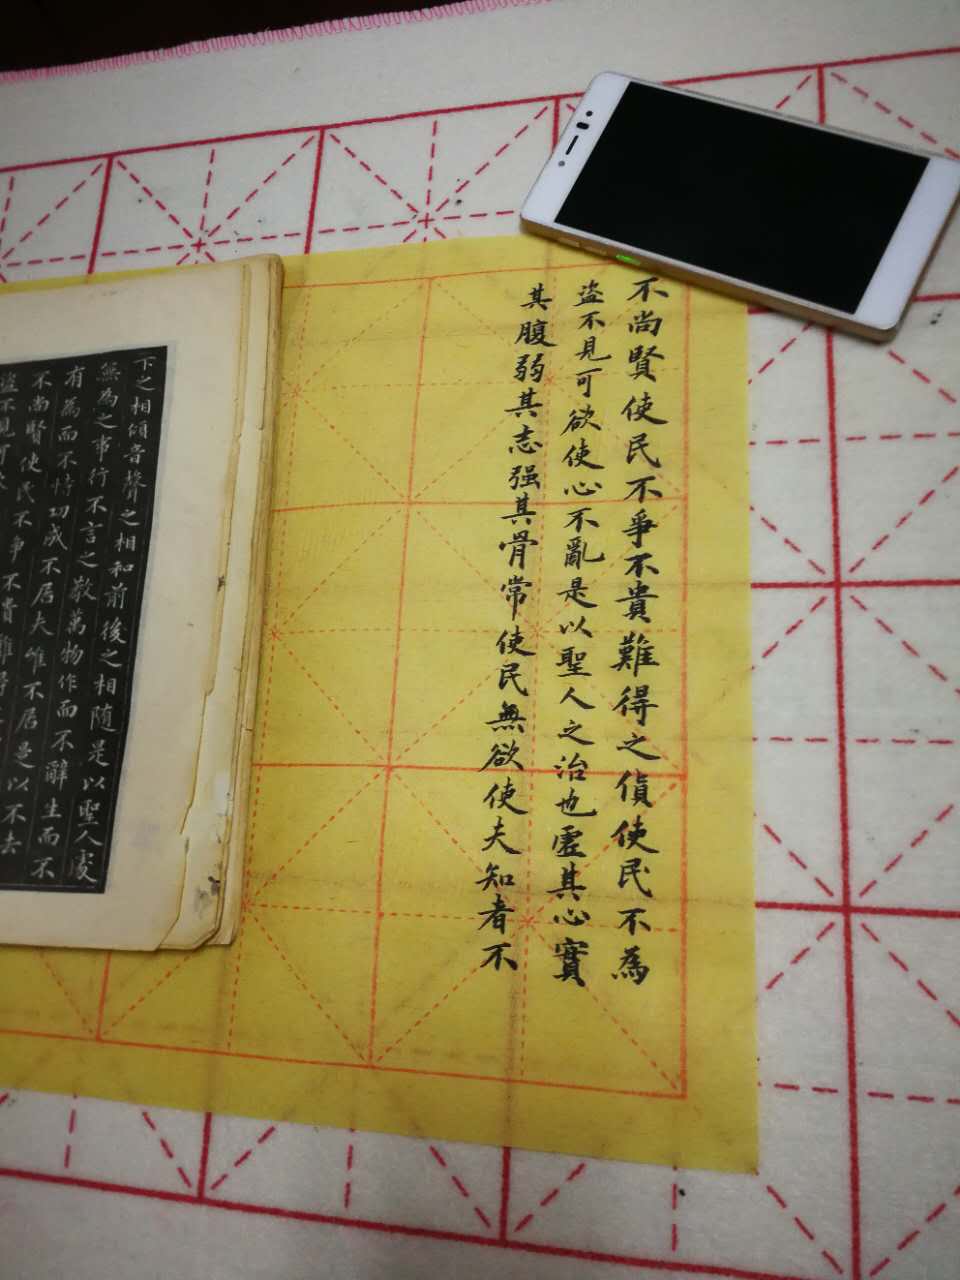 不尚賢使民不爭不貴難得之貨使民不為
盜不見可欲使心不亂是以聖人之治也虛其心實
其腹弱其志强其骨常使民無欲使夫知者不
下之相傾音聲之相和前後之相隨是以聖人處
無為之事行不言之教萬物作而不辭生而不
有為而不恃功成不居夫惟不居是以不去
不尚賢使民不爭不貴難得
盜不見可